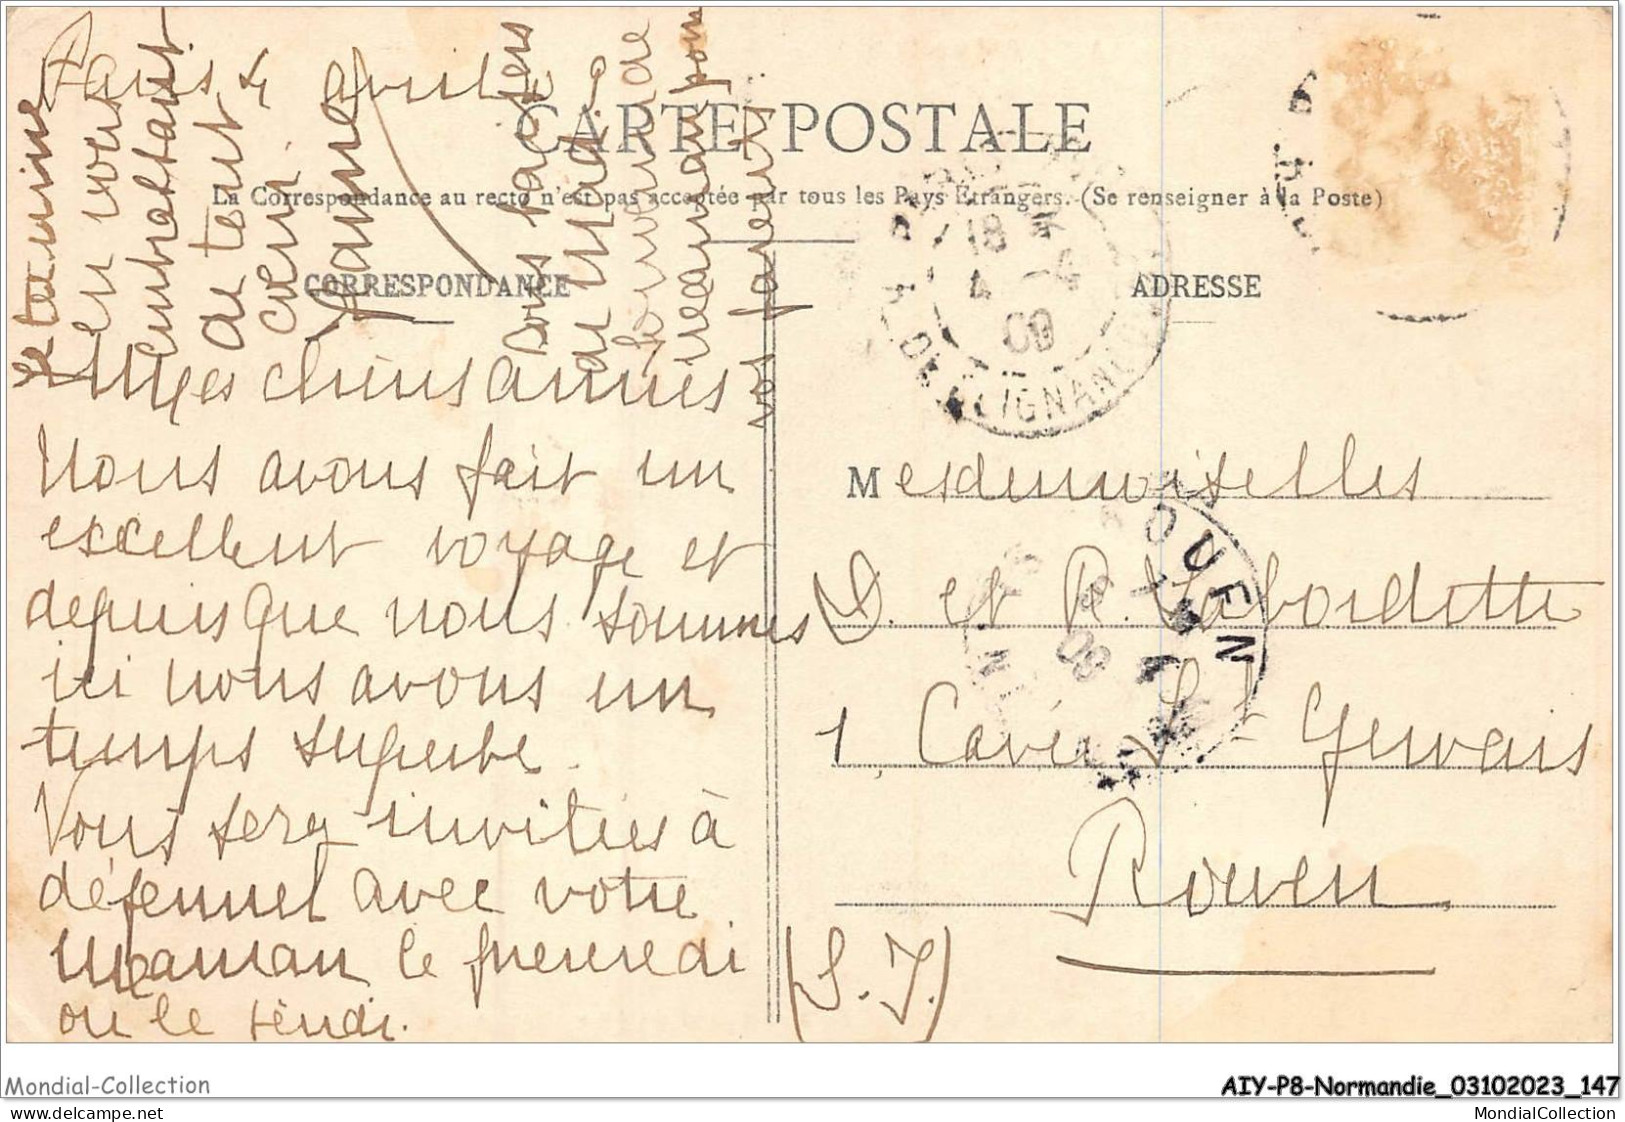 Paris 4 avril
CARTE POSTALE
La Correspondance au recto n'est pas acceptée par tous les Pays Étrangers. (Se renseigner à la Poste)
CORRESPONDANCE
ADRESSE
Mes chères amies
Nous avons fait un
excellent voyage et
depuis que nous sommes
ici nous avons un
temps superbe.
Vous serez invitées à
déjeuner avec votre
maman le
ou le
Je termine
en vous
embrassant
de tout
cœur
Jeanne
Bons baisers
de
vos parents
Mesdemoiselles
D. et R. Labordette
1, Cavée St Gervais
Rouen
(S. I.)
18
4 - 4
09
CLIGNANCOURT
ROUEN
09
Mondial-Collection
AIY-P8-Normandie_03102023_147
MondialCollection